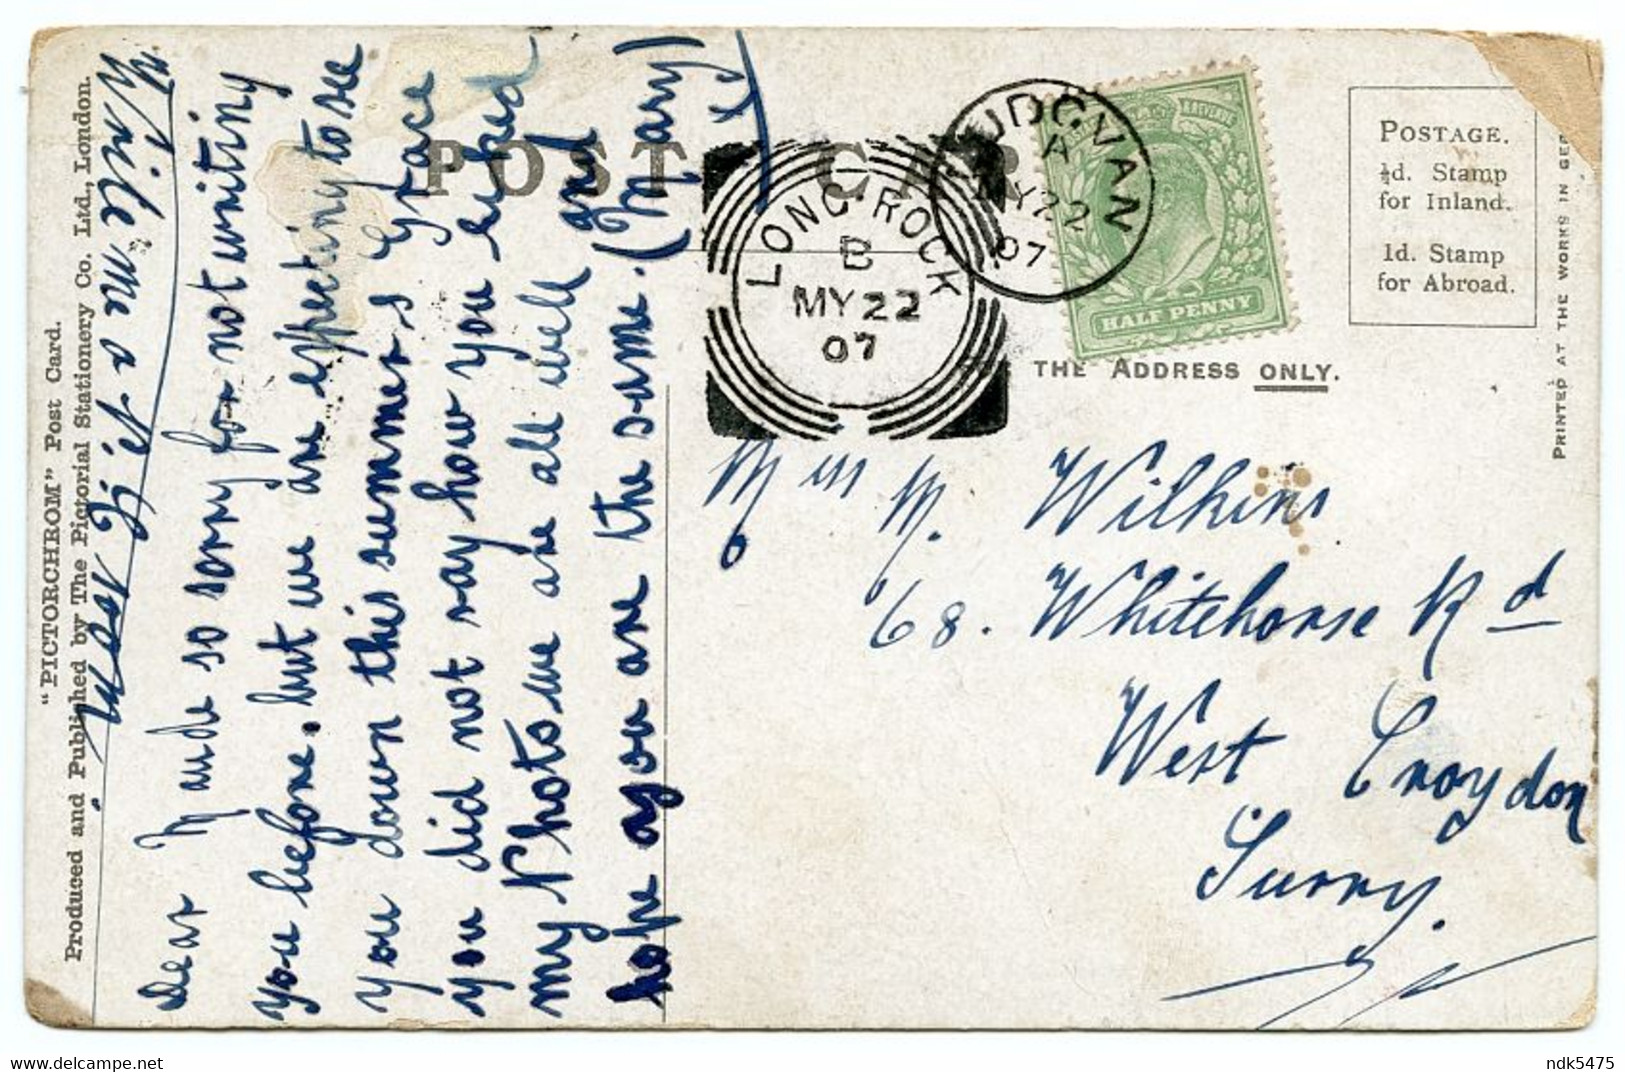 Write me a P. C. soon
"PICTORCHROM" Post Card.
Produced and Published by The Pictorial Stationery Co. Ltd., London.
Dear Maude so sorry for not writing
you before. but we are expecting to see
you down this summer & Grace
you did not say how you liked
my Photo we are all well and
hope you are the same. (Mary)
xx
POST CAR
LONG ROCK
B
MY 22
07
LUDGVAN
A
MY 22
07
HALF PENNY
POSTAGE.
½d. Stamp
for Inland.
1d. Stamp
for Abroad.
PRINTED AT THE WORKS IN GER
THE ADDRESS ONLY.
Miss M. Wilkins
68. Whitehorse Rd
West Croydon
Surry.
ndk5475